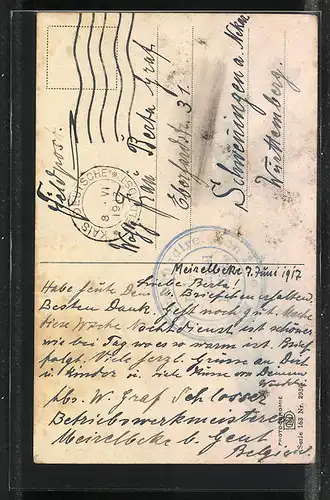 Feldpost.
Frau Berta Graf
Eberhardstr. 31
Schwenningen a. Neckar
Württemberg.
KAIS. DEUTSCHE
8 VI
Meirelbeke 7. Juni 1917
Liebe Berta!
Habe heute Dein l. Briefchen erhalten.
Besten Dank. Geht noch gut. Mache
diese Woche Nachtdienst, ist schöner
wie bei Tag wo es so warm ist. Brief
folgt. Viele herzl. Grüsse an Dich
u. Kinder u. viele Küsse von Deinem
Abs. W. Graf Schlosser
Betriebswerkmeisterei
Meirelbeke b. Gent
Belgien
PHOTOCHROMIE
Serie 163 Nr.